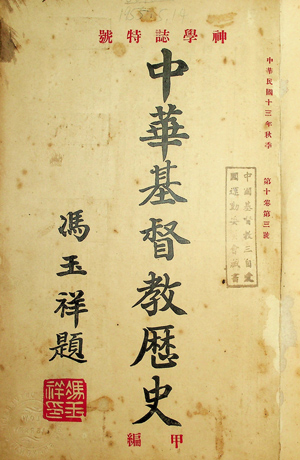 神學誌特號
中華民國十三年秋季 第十卷第三號
中華基督教歷史
甲編
馮玉祥題
馮玉
祥印
中國基督教三自愛
國運動委員會藏書